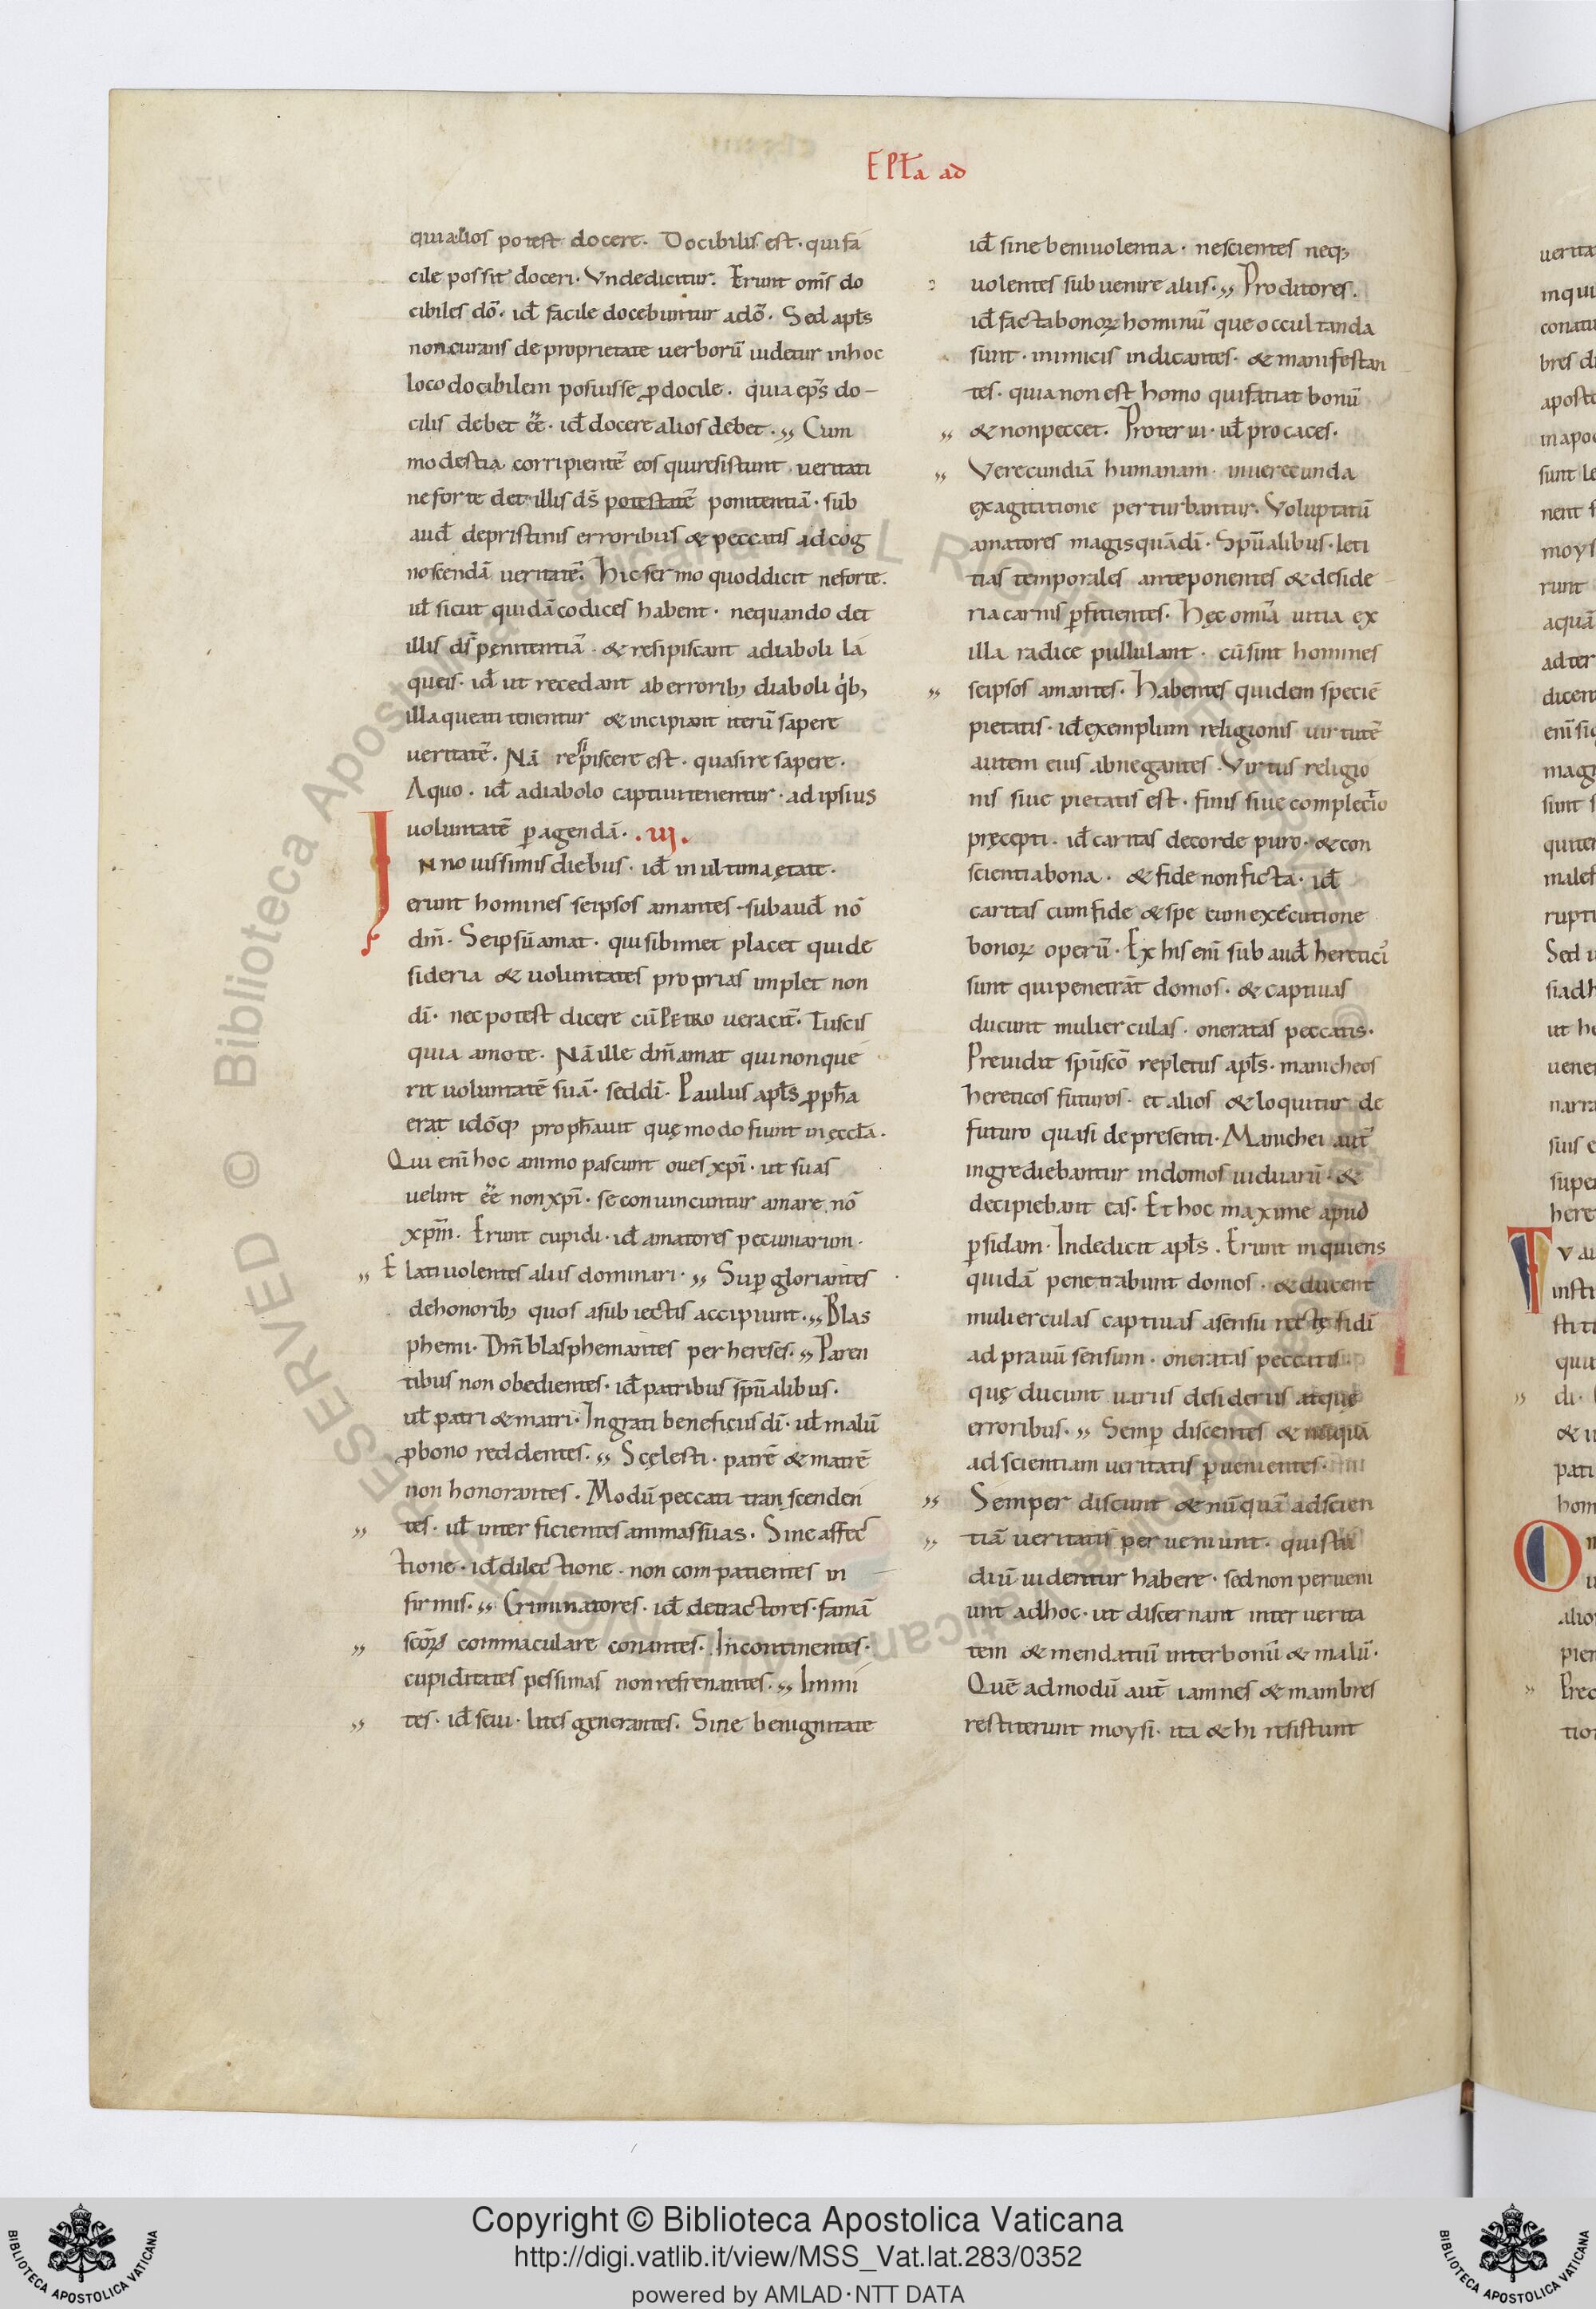 EPꝉa ad
quialios potest docere. Docibilis est. qui fa
cile possit doceri. Vndedicitur. Erunt om̅s do
cibiles dō. id̄ facile docebuntur adō. Sed apl̄s
noncurans de proprietate uerborū uidetur inhoc
loco docibilem posuisse ꝓdocile. quia ep̅s do-
cilis debet ēe. id̄ docere alios debet. ,, Cum
modestia corripientē eos quiresistunt ueritati
ne forte det illis ds̄ potestatē penitentiā. sub
aud̄ depristinis erroribus & peccatis adcog
noscendā ueritatē. Hic sermo quoddicit neforte.
ul̄ sicut quidācodices habent. nequando det
illis ds̄ pęnitentiā. & resipiscant adiaboli la
queis. id̄ ut recedant ab errorib; diaboli qib;
illaqueati tenentur & incipiant iterū sapere
ueritatē. Nā resipiscere est. quasire sapere.
Aquo. id̄ adiabolo captiuitenentur. ad ipsius
uoluntatē ꝑagendā. .iii.
IN nouissimis diebus. id̄ in ultima ętate.
erunt homines seipsos amantes. subaud̄ nō
dm̄. Seipsū amat. qui sibimet placet qui de
sideria & uoluntates proprias implet non
dī. nec potest dicere cū PETRO ueracit̄. Tuscis
quia amo te. Nā ille dm̄ amat qui non que
rit uoluntatē suā. sed dī. Paulus apl̄s ꝓph̄a
erat idōq; proph̄auit quę modo fiunt in ęccl̄a.
Qui enī hoc animo pascunt oues xp̄i. ut suas
uelint ēe non xp̄i. se conuincuntur amare nō
xp̄m̄. Erunt cupidi. id̄ amatores pecuniarum.
,, Elati uolentes aliis dominari. ,, Suꝑ gloriantes
dehonorib; quos asubiectis accipiunt. ,, Blas
phemi. Dm̄ blasphemantes per hereses. ,, Paren
tibus non obedientes. id̄ patribus sp̄ualibus.
ul̄ patri & matri. Ingrati beneficiis dī. ul̄ malū
ꝓbono reddentes. ,, Scęlesti. patrē & matrē
non honorantes. Modū peccati transcenden
,, tes. ul̄ interficientes animas suas. Sine affec
tione. id̄ dilectione. non compatientes in
firmis. ,, Criminatores. id̄ detractores. famā
,, sc̄oꝝ commaculare conantes. Incontinentes.
cupiditates pessimas non refrenantes. ,, Inmi
,, tes. id̄ seui. lites generantes. Sine benignitate
id̄ sine beniuolentia. nescientes neq;
uolentes subuenire aliis. ,, Proditores.
id̄ facta bonoꝝ hominū que occultanda
sunt. inimicis indicantes. & manifestan
tes. quia non est homo qui fatiat bonū
,, & non peccet. Proterui. ul̄ procaces.
,, Verecundiā humanam. inuerecunda
exagititione perturbantur. Voluptatū
amatores magis quā dī. Sp̄ualibus. leti
tias temporales anteponentes & deside
ria carnis ꝑfitientes. Hęc omīa uitia ex
illa radice pullulant. cū sint homines
,, seipsos amantes. Habentes quidem speciē
pietatis. id̄ exemplum religionis uirtutē
autem eius abnegantes. Virtus religio
nis siue pietatis est. finis siue complectio
pręcepti. id̄ caritas de corde puro. & con
scientia bona. & fide non ficta. id̄
caritas cum fide & spe cum executione
bonoꝝ operū. Ex his enī subaud̄ heretici
sunt qui penetrāt domos. & captiuas
ducunt mulierculas. oneratas peccatis.
Preuidit sp̄u sc̄o repletus apl̄s. manicheos
hereticos futuros. et alios & loquitur de
futuro quasi de presenti. Manichei aut̄
ingrediebantur in domos uiduarū. &
decipiebant eas. Et hoc maxime apud
ꝑsidam. Inde dicit apl̄s. Erunt inquiens
quidā penetrabunt domos. & ducent
mulierculas captiuas asensu rectę fidī
ad prauū sensum. oneratas peccatis.
quę ducunt uariis desideriis atque
erroribus. ,, Semꝑ discentes & nūquā
ad scientiam ueritatis ꝑuenientes.
,, Semper discunt & nūquā adscien
,, tiā ueritatis perueniunt. qui stu
diū uidentur habere. sed non perueni
unt adhoc. ut discernant inter uerita
tem & mendatiū inter bonū & malū.
Quē admodū aut̄ iamnes & mambres
restiterunt moysi. ita & hi resistunt
Copyright © Biblioteca Apostolica Vaticana
http://digi.vatlib.it/view/MSS_Vat.lat.283/0352
powered by AMLAD·NTT DATA